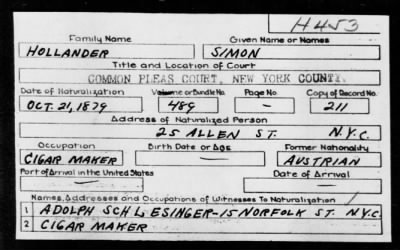 H453
Family Name Given Name or Names
HOLLANDER SIMON
Title and Location of Court
COMMON PLEAS COURT, NEW YORK COUNTY.
Date of Naturalization Volume or Bundle No. Page No. Copy of Record No.
OCT. 21, 1879 489 — 211
Address of Naturalized Person
25 ALLEN ST. N.Y.C.
Occupation Birth Date or Age Former Nationality
CIGAR MAKER — AUSTRIAN
Port of Arrival in the United States Date of Arrival
— —
Names, Addresses and Occupations of Witnesses To Naturalization
1 ADOLPH SCHLESINGER-15 NORFOLK ST. N.Y.C.
2 CIGAR MAKER